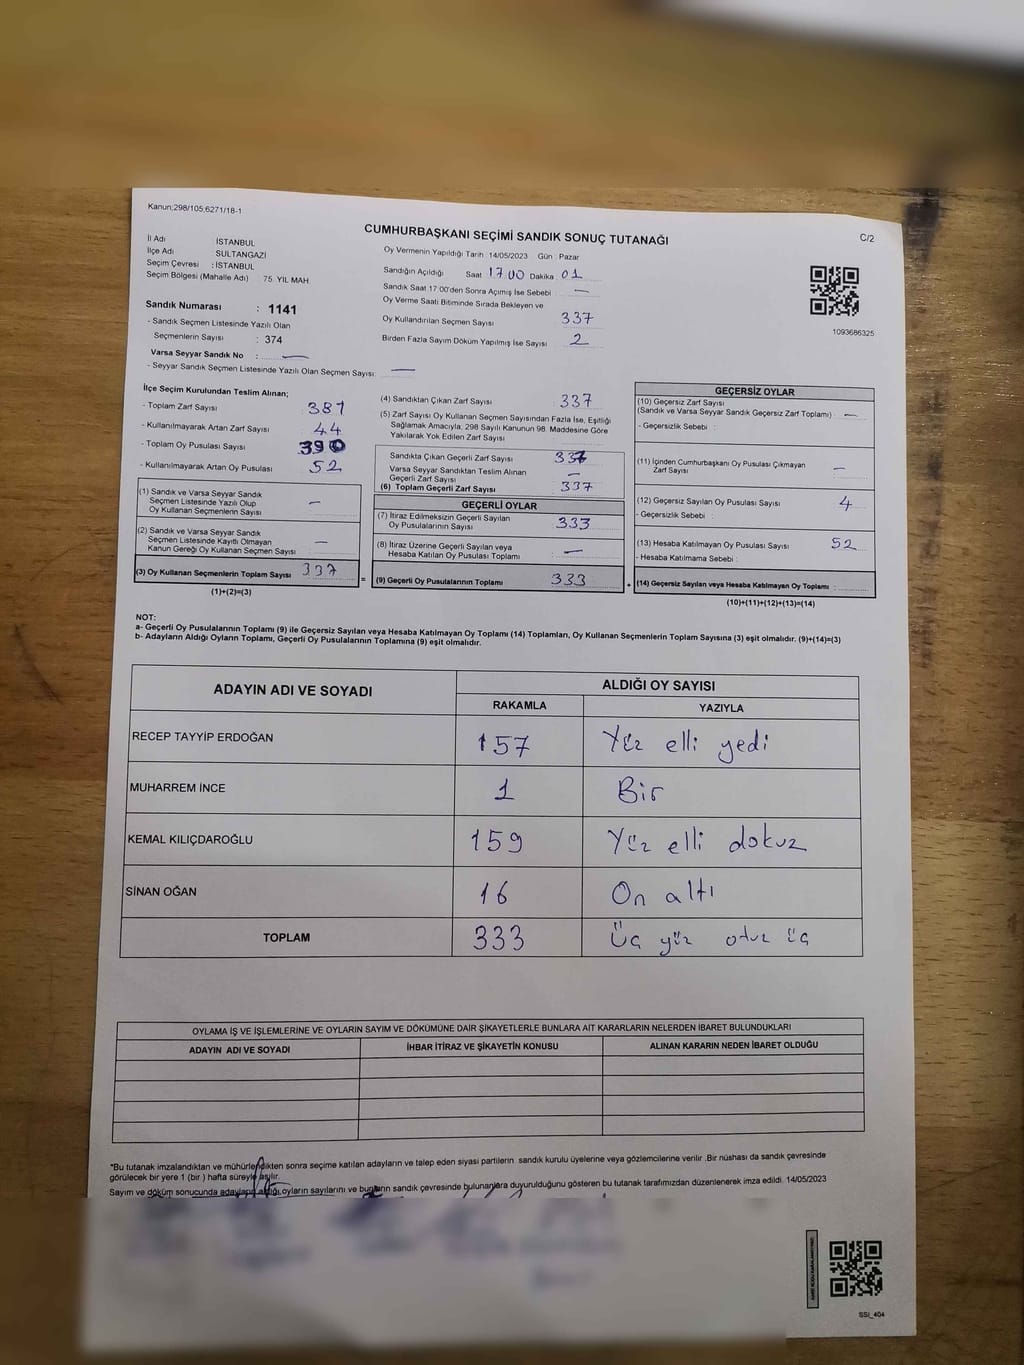 Kanun;298/105,6271/18-1
CUMHURBAŞKANI SEÇİMİ SANDIK SONUÇ TUTANAĞI
C/2
İl Adı : İSTANBUL
İlçe Adı : SULTANGAZİ
Seçim Çevresi : İSTANBUL
Seçim Bölgesi (Mahalle Adı) : 75. YIL MAH
Sandık Numarası : 1141
- Sandık Seçmen Listesinde Yazılı Olan
Seçmenlerin Sayısı : 374
Varsa Seyyar Sandık No : —
- Seyyar Sandık Seçmen Listesinde Yazılı Olan Seçmen Sayısı: —
Oy Vermenin Yapıldığı Tarih : 14/05/2023 Gün : Pazar
Sandığın Açıldığı Saat : 17 00 Dakika : 01
Sandık Saat 17:00'den Sonra Açımış İse Sebebi : —
Oy Verme Saati Bitiminde Sırada Bekleyen ve
Oy Kullandırılan Seçmen Sayısı 337
Birden Fazla Sayım Döküm Yapılmış İse Sayısı 2
1093686325
İlçe Seçim Kurulundan Teslim Alınan;
- Toplam Zarf Sayısı 381
- Kullanılmayarak Artan Zarf Sayısı 44
- Toplam Oy Pusulası Sayısı 390
- Kullanılmayarak Artan Oy Pusulası 52
(1) Sandık ve Varsa Seyyar Sandık
Seçmen Listesinde Yazılı Olup
Oy Kullanan Seçmenlerin Sayısı —
(2) Sandık ve Varsa Seyyar Sandık
Seçmen Listesinde Kayıtlı Olmayan
Kanun Gereği Oy Kullanan Seçmen Sayısı —
(3) Oy Kullanan Seçmenlerin Toplam Sayısı 337
(1)+(2)=(3)
=
(4) Sandıktan Çıkan Zarf Sayısı 337
(5) Zarf Sayısı Oy Kullanan Seçmen Sayısından Fazla İse, Eşitliği
Sağlamak Amacıyla, 298 Sayılı Kanunun 98. Maddesine Göre
Yakılarak Yok Edilen Zarf Sayısı
Sandıkta Çıkan Geçerli Zarf Sayısı 337
Varsa Seyyar Sandıktan Teslim Alınan
Geçerli Zarf Sayısı —
(6) Toplam Geçerli Zarf Sayısı 337
GEÇERLİ OYLAR
(7) İtiraz Edilmeksizin Geçerli Sayılan
Oy Pusulalarının Sayısı 333
(8) İtiraz Üzerine Geçerli Sayılan veya
Hesaba Katılan Oy Pusulası Toplamı —
(9) Geçerli Oy Pusulalarının Toplamı 333
+
GEÇERSİZ OYLAR
(10) Geçersiz Zarf Sayısı
(Sandık ve Varsa Seyyar Sandık Geçersiz Zarf Toplamı) : —
- Geçersizlik Sebebi :
(11) İçinden Cumhurbaşkanı Oy Pusulası Çıkmayan
Zarf Sayısı —
(12) Geçersiz Sayılan Oy Pusulası Sayısı 4
- Geçersizlik Sebebi :
(13) Hesaba Katılmayan Oy Pusulası Sayısı 52
- Hesaba Katılmama Sebebi :
(14) Geçersiz Sayılan veya Hesaba Katılmayan Oy Toplamı :
(10)+(11)+(12)+(13)=(14)
NOT:
a- Geçerli Oy Pusulalarının Toplamı (9) ile Geçersiz Sayılan veya Hesaba Katılmayan Oy Toplamı (14) Toplamları, Oy Kullanan Seçmenlerin Toplam Sayısına (3) eşit olmalıdır. (9)+(14)=(3)
b- Adayların Aldığı Oyların Toplamı, Geçerli Oy Pusulalarının Toplamına (9) eşit olmalıdır.
ADAYIN ADI VE SOYADI
ALDIĞI OY SAYISI
RAKAMLA YAZIYLA
RECEP TAYYİP ERDOĞAN 157 Yüz elli yedi
MUHARREM İNCE 1 Bir
KEMAL KILIÇDAROĞLU 159 Yüz elli dokuz
SİNAN OĞAN 16 On altı
TOPLAM 333 Üç yüz otuz üç
OYLAMA İŞ VE İŞLEMLERİNE VE OYLARIN SAYIM VE DÖKÜMÜNE DAİR ŞİKAYETLERLE BUNLARA AİT KARARLARIN NELERDEN İBARET BULUNDUKLARI
ADAYIN ADI VE SOYADI İHBAR İTİRAZ VE ŞİKAYETİN KONUSU ALINAN KARARIN NEDEN İBARET OLDUĞU
*Bu tutanak imzalandıktan ve mühürlendikten sonra seçime katılan adayların ve talep eden siyasi partilerin sandık kurulu üyelerine veya gözlemcilerine verilir .Bir nüshası da sandık çevresinde
görülecek bir yere 1 (bir ) hafta süreyle asılır.
Sayım ve döküm sonucunda adayların aldığı oyların sayılarını ve bunların sandık çevresinde bulunanlara duyurulduğunu gösteren bu tutanak tarafımızdan düzenlenerek imza edildi. 14/05/2023
SSI_404